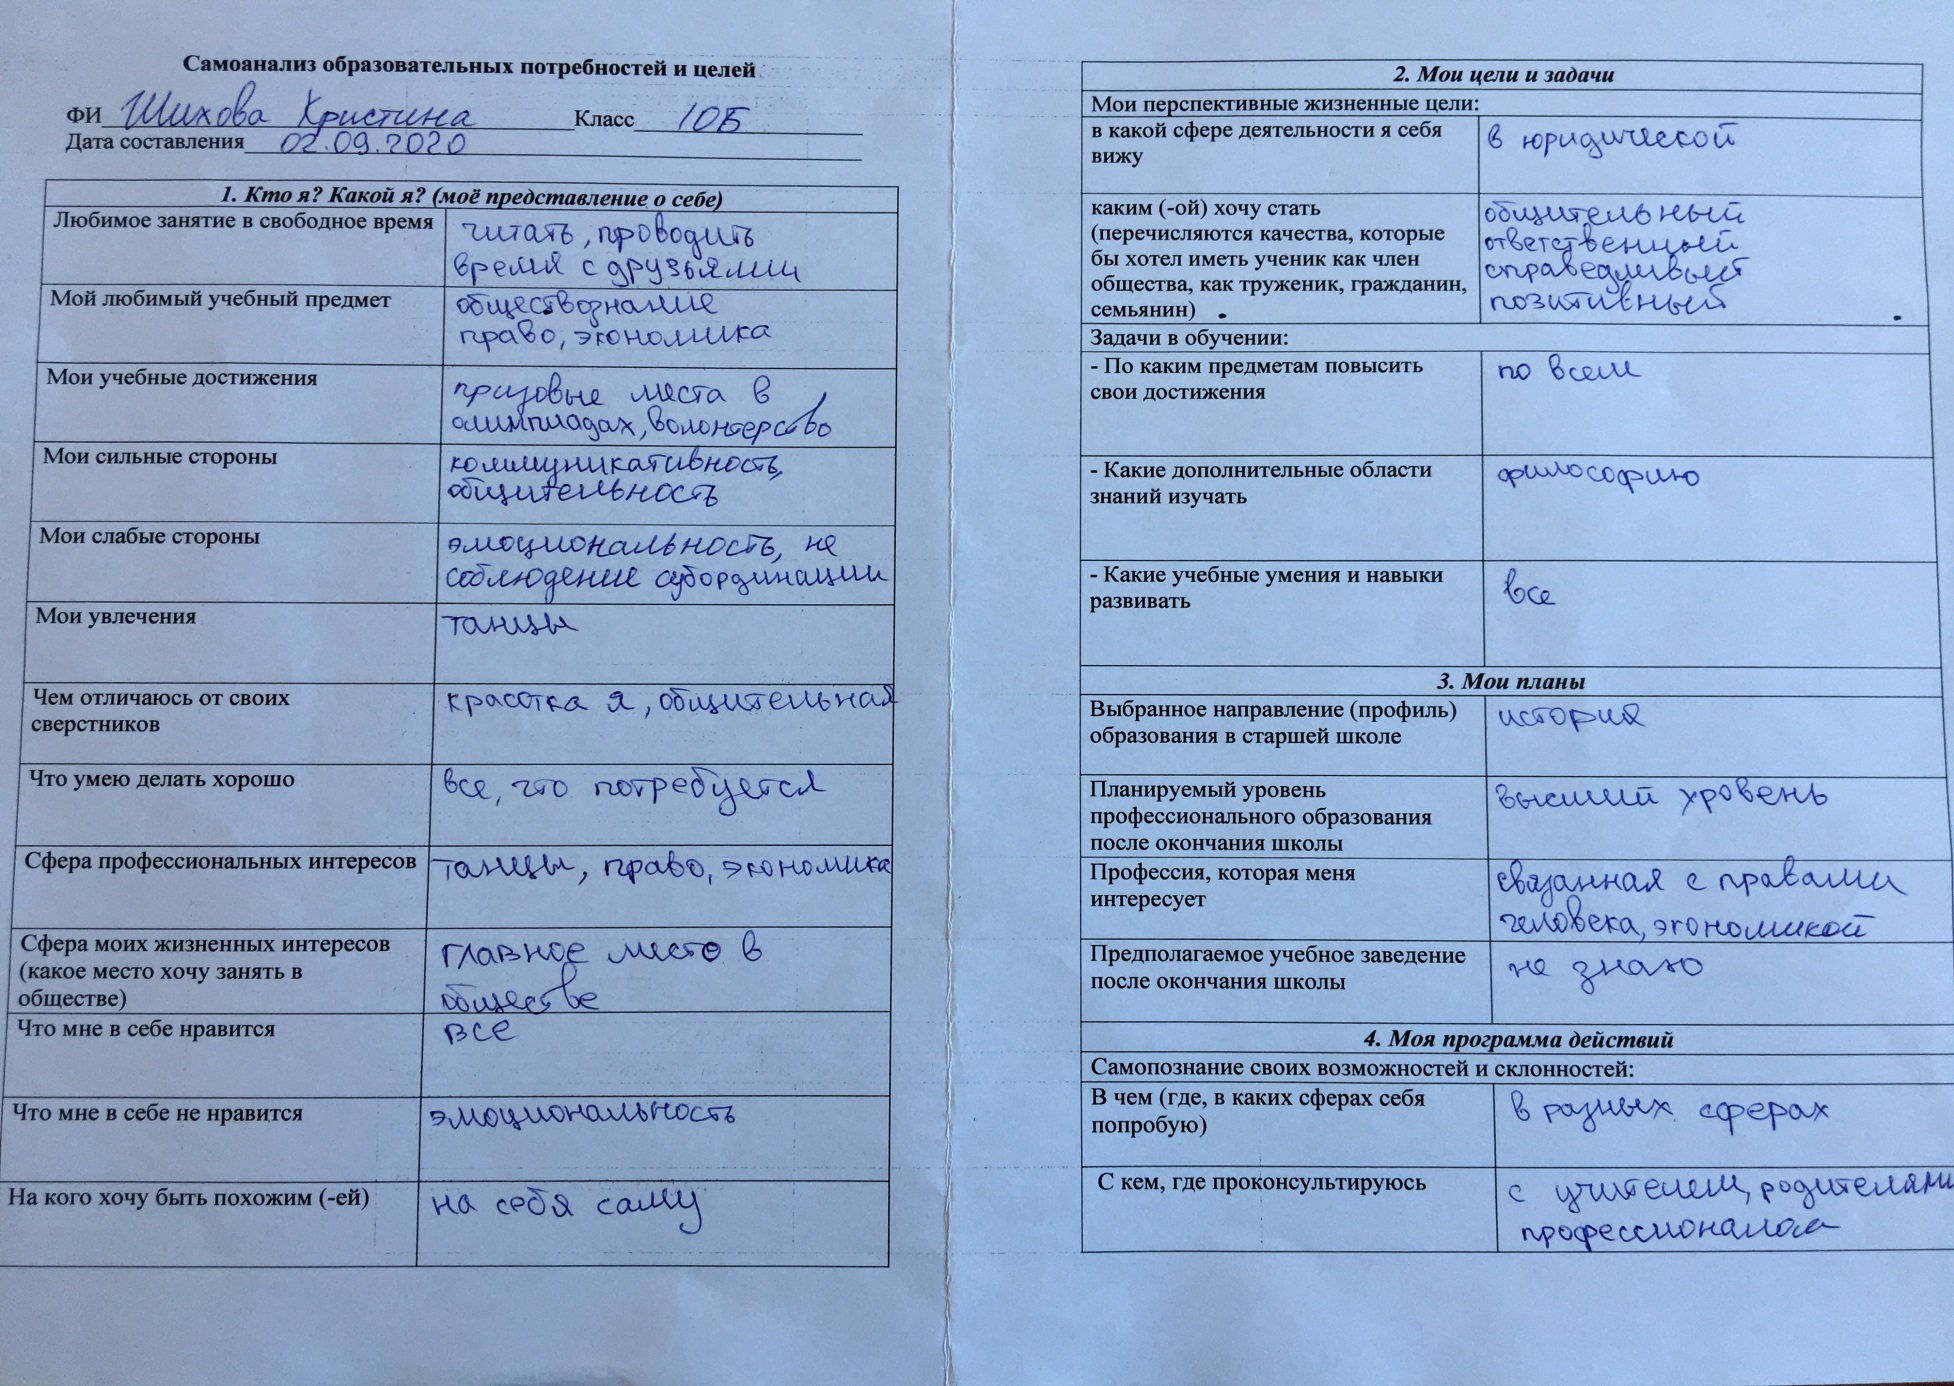 Самоанализ образовательных потребностей и целей
ФИ Шихова Кристина Класс 10Б
Дата составления 02.09.2020
1. Кто я? Какой я? (моё представление о себе)
Любимое занятие в свободное время читать, проводить
время с друзьями
Мой любимый учебный предмет обществознание
право, экономика
Мои учебные достижения призовые места в
олимпиадах, волонтерство
Мои сильные стороны коммуникативность,
общительность
Мои слабые стороны эмоциональность, не
соблюдение субординации
Мои увлечения танцы
Чем отличаюсь от своих красотка я, общительная
сверстников
Что умею делать хорошо все, что потребуется
Сфера профессиональных интересов танцы, право, экономика
Сфера моих жизненных интересов главное место в
(какое место хочу занять в
обществе) обществе
Что мне в себе нравится все
Что мне в себе не нравится эмоциональность
На кого хочу быть похожим (-ей) на себя саму
2. Мои цели и задачи
Мои перспективные жизненные цели:
в какой сфере деятельности я себя в юридической
вижу
каким (-ой) хочу стать общительный
(перечисляются качества, которые ответственный
бы хотел иметь ученик как член справедливый
общества, как труженик, гражданин, позитивный
семьянин)
Задачи в обучении:
- По каким предметам повысить по всем
свои достижения
- Какие дополнительные области философию
знаний изучать
- Какие учебные умения и навыки все
развивать
3. Мои планы
Выбранное направление (профиль) история
образования в старшей школе
Планируемый уровень высший уровень
профессионального образования
после окончания школы
Профессия, которая меня связанная с правами
интересует человека, экономикой
Предполагаемое учебное заведение не знаю
после окончания школы
4. Моя программа действий
Самопознание своих возможностей и склонностей:
В чем (где, в каких сферах себя в разных сферах
попробую)
С кем, где проконсультируюсь с учителем, родителями
профессионалом